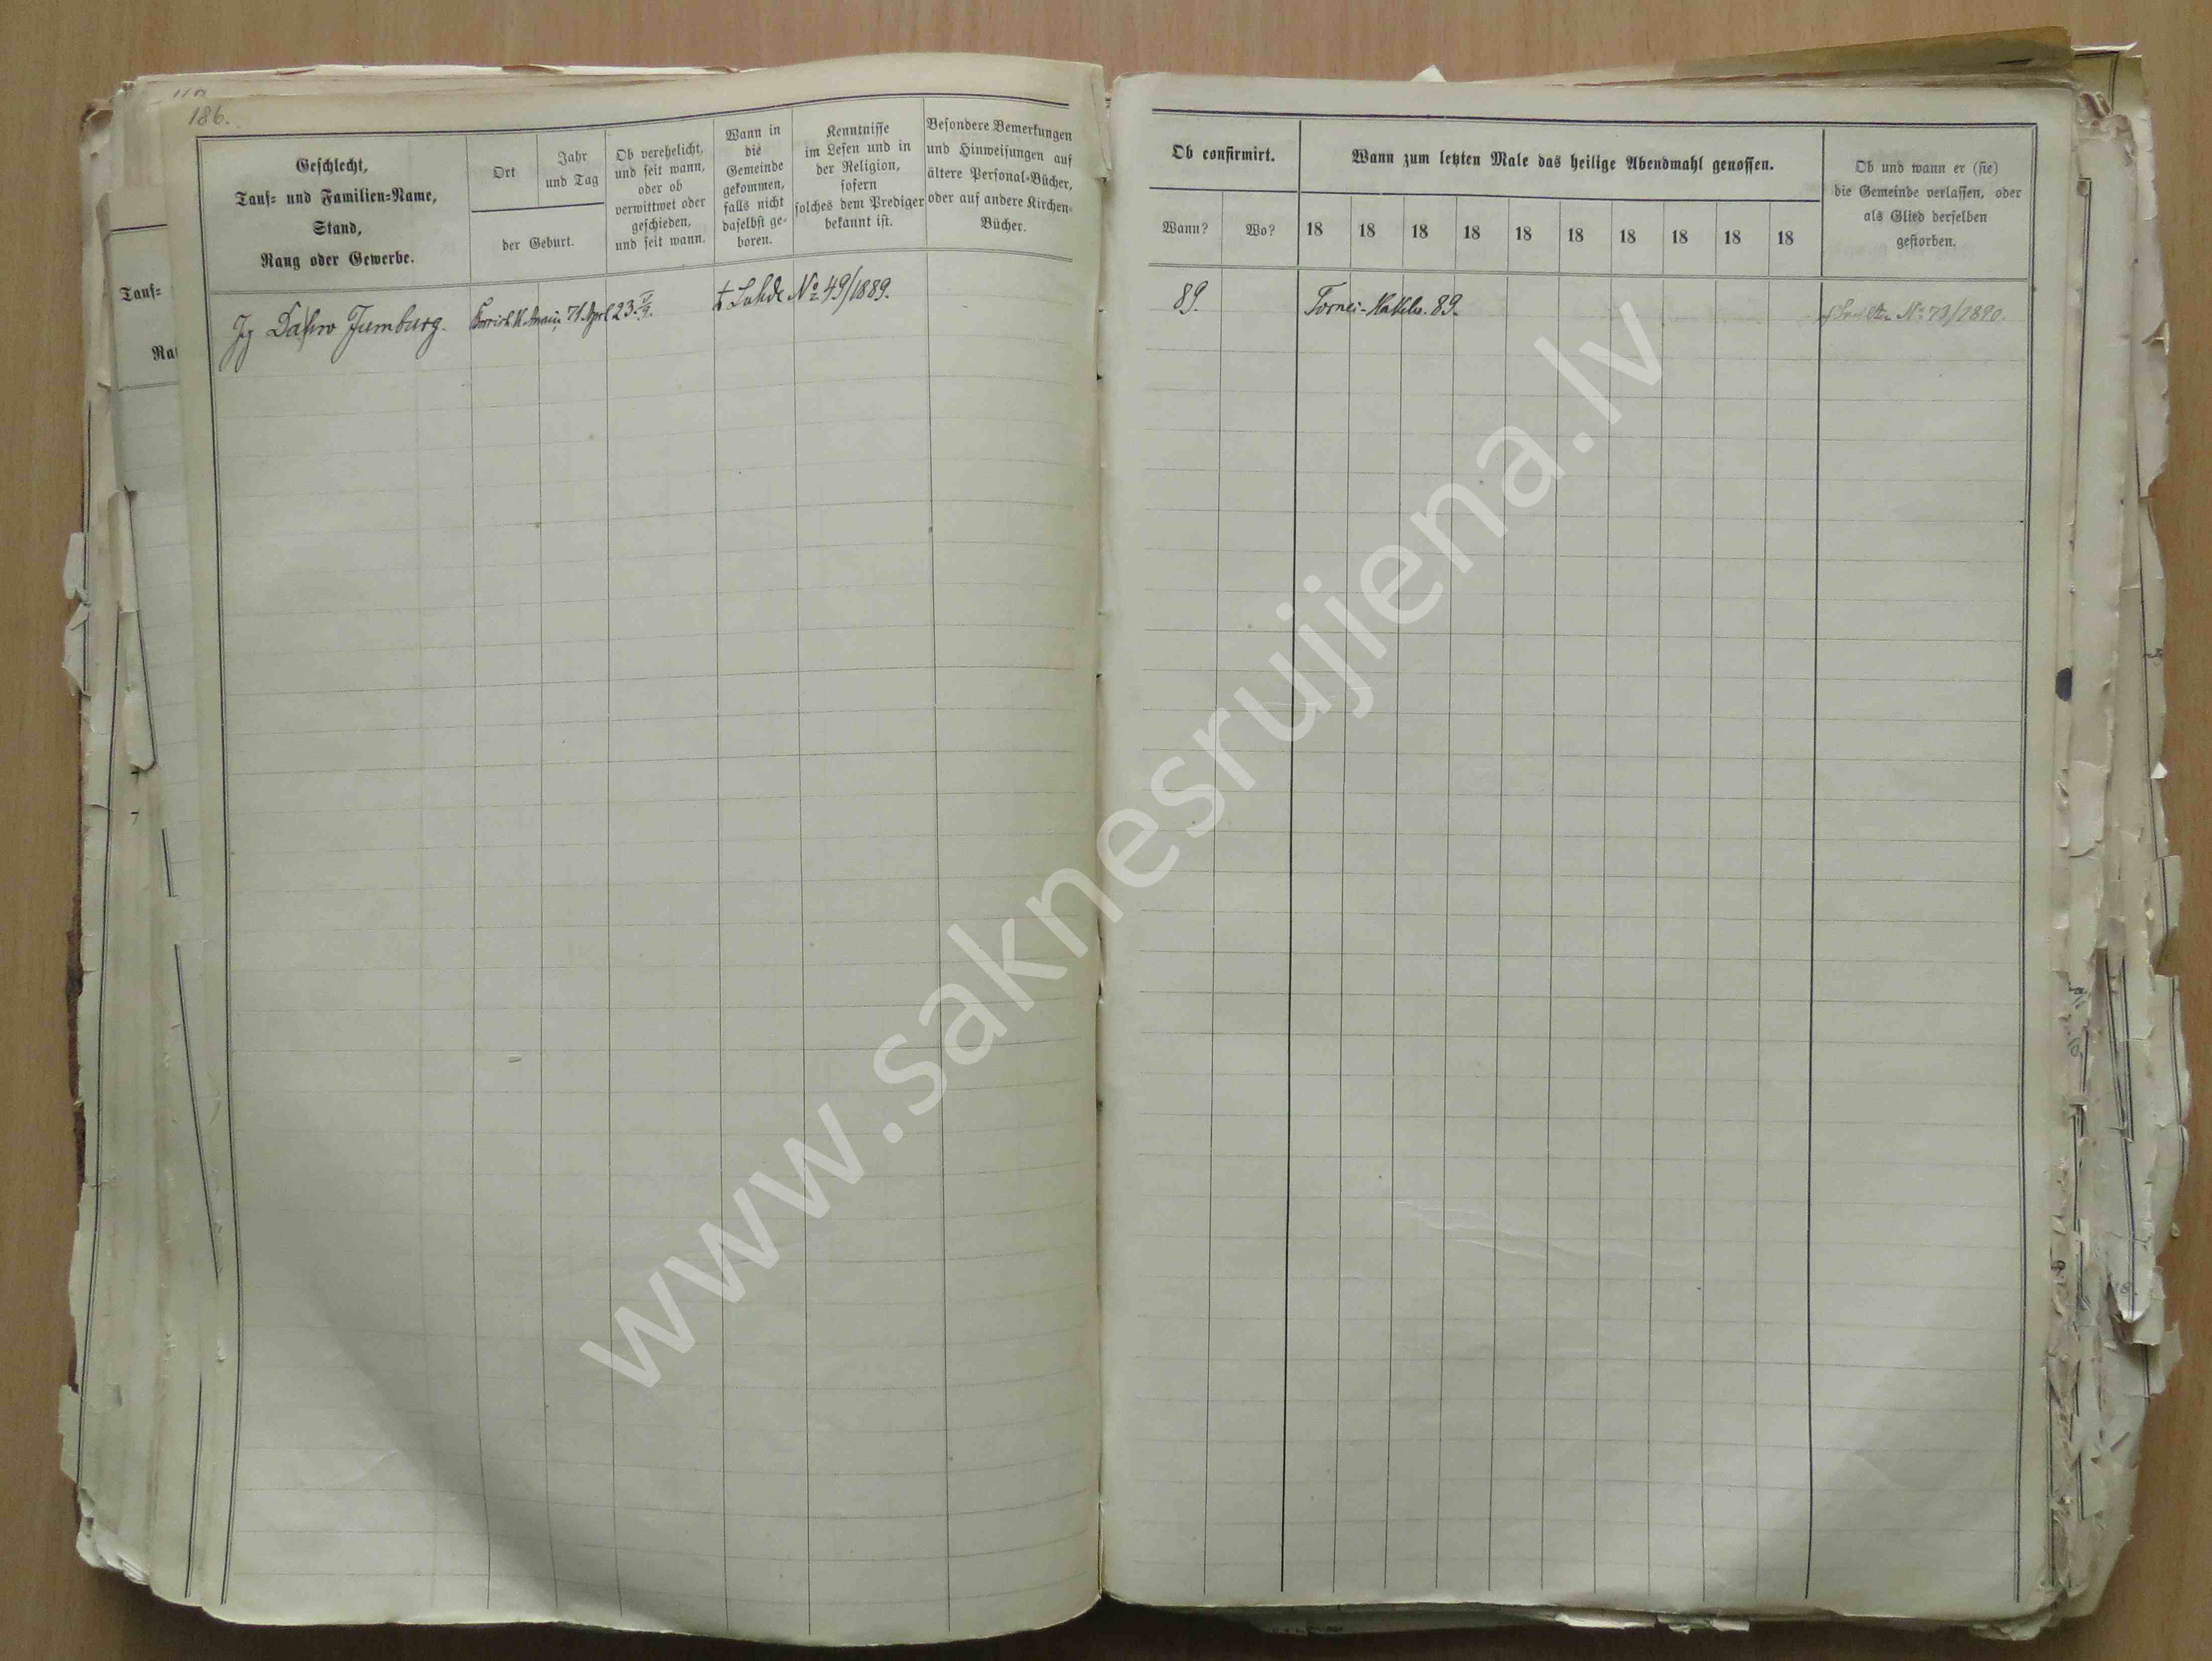 186.
Geschlecht,
Tauf- und Familien-Name,
Stand,
Rang oder Gewerbe.
Ort
Jahr
und Tag
der Geburt.
Ob verehelicht,
und seit wann,
oder ob
verwittwet oder
geschieden,
und seit wann.
Wann in
die
Gemeinde
gekommen,
falls nicht
daselbst ge-
boren.
Kenntnisse
im Lesen und in
der Religion,
sofern
solches dem Prediger
bekannt ist.
Besondere Bemerkungen
und Hinweisungen auf
ältere Personal-Bücher,
oder auf andere Kirchen-
Bücher.
Jumburg. 71. April 23. Luhde No 49/1889.
Tauf-
Ob confirmirt.
Wann?
Wo?
Wann zum letzten Male das heilige Abendmahl genossen.
18 18 18 18 18 18 18 18 18 18
Ob und wann er (sie)
die Gemeinde verlassen, oder
als Glied derselben
gestorben.
89. 89. No 73/1890.
www.saknesrujiena.lv